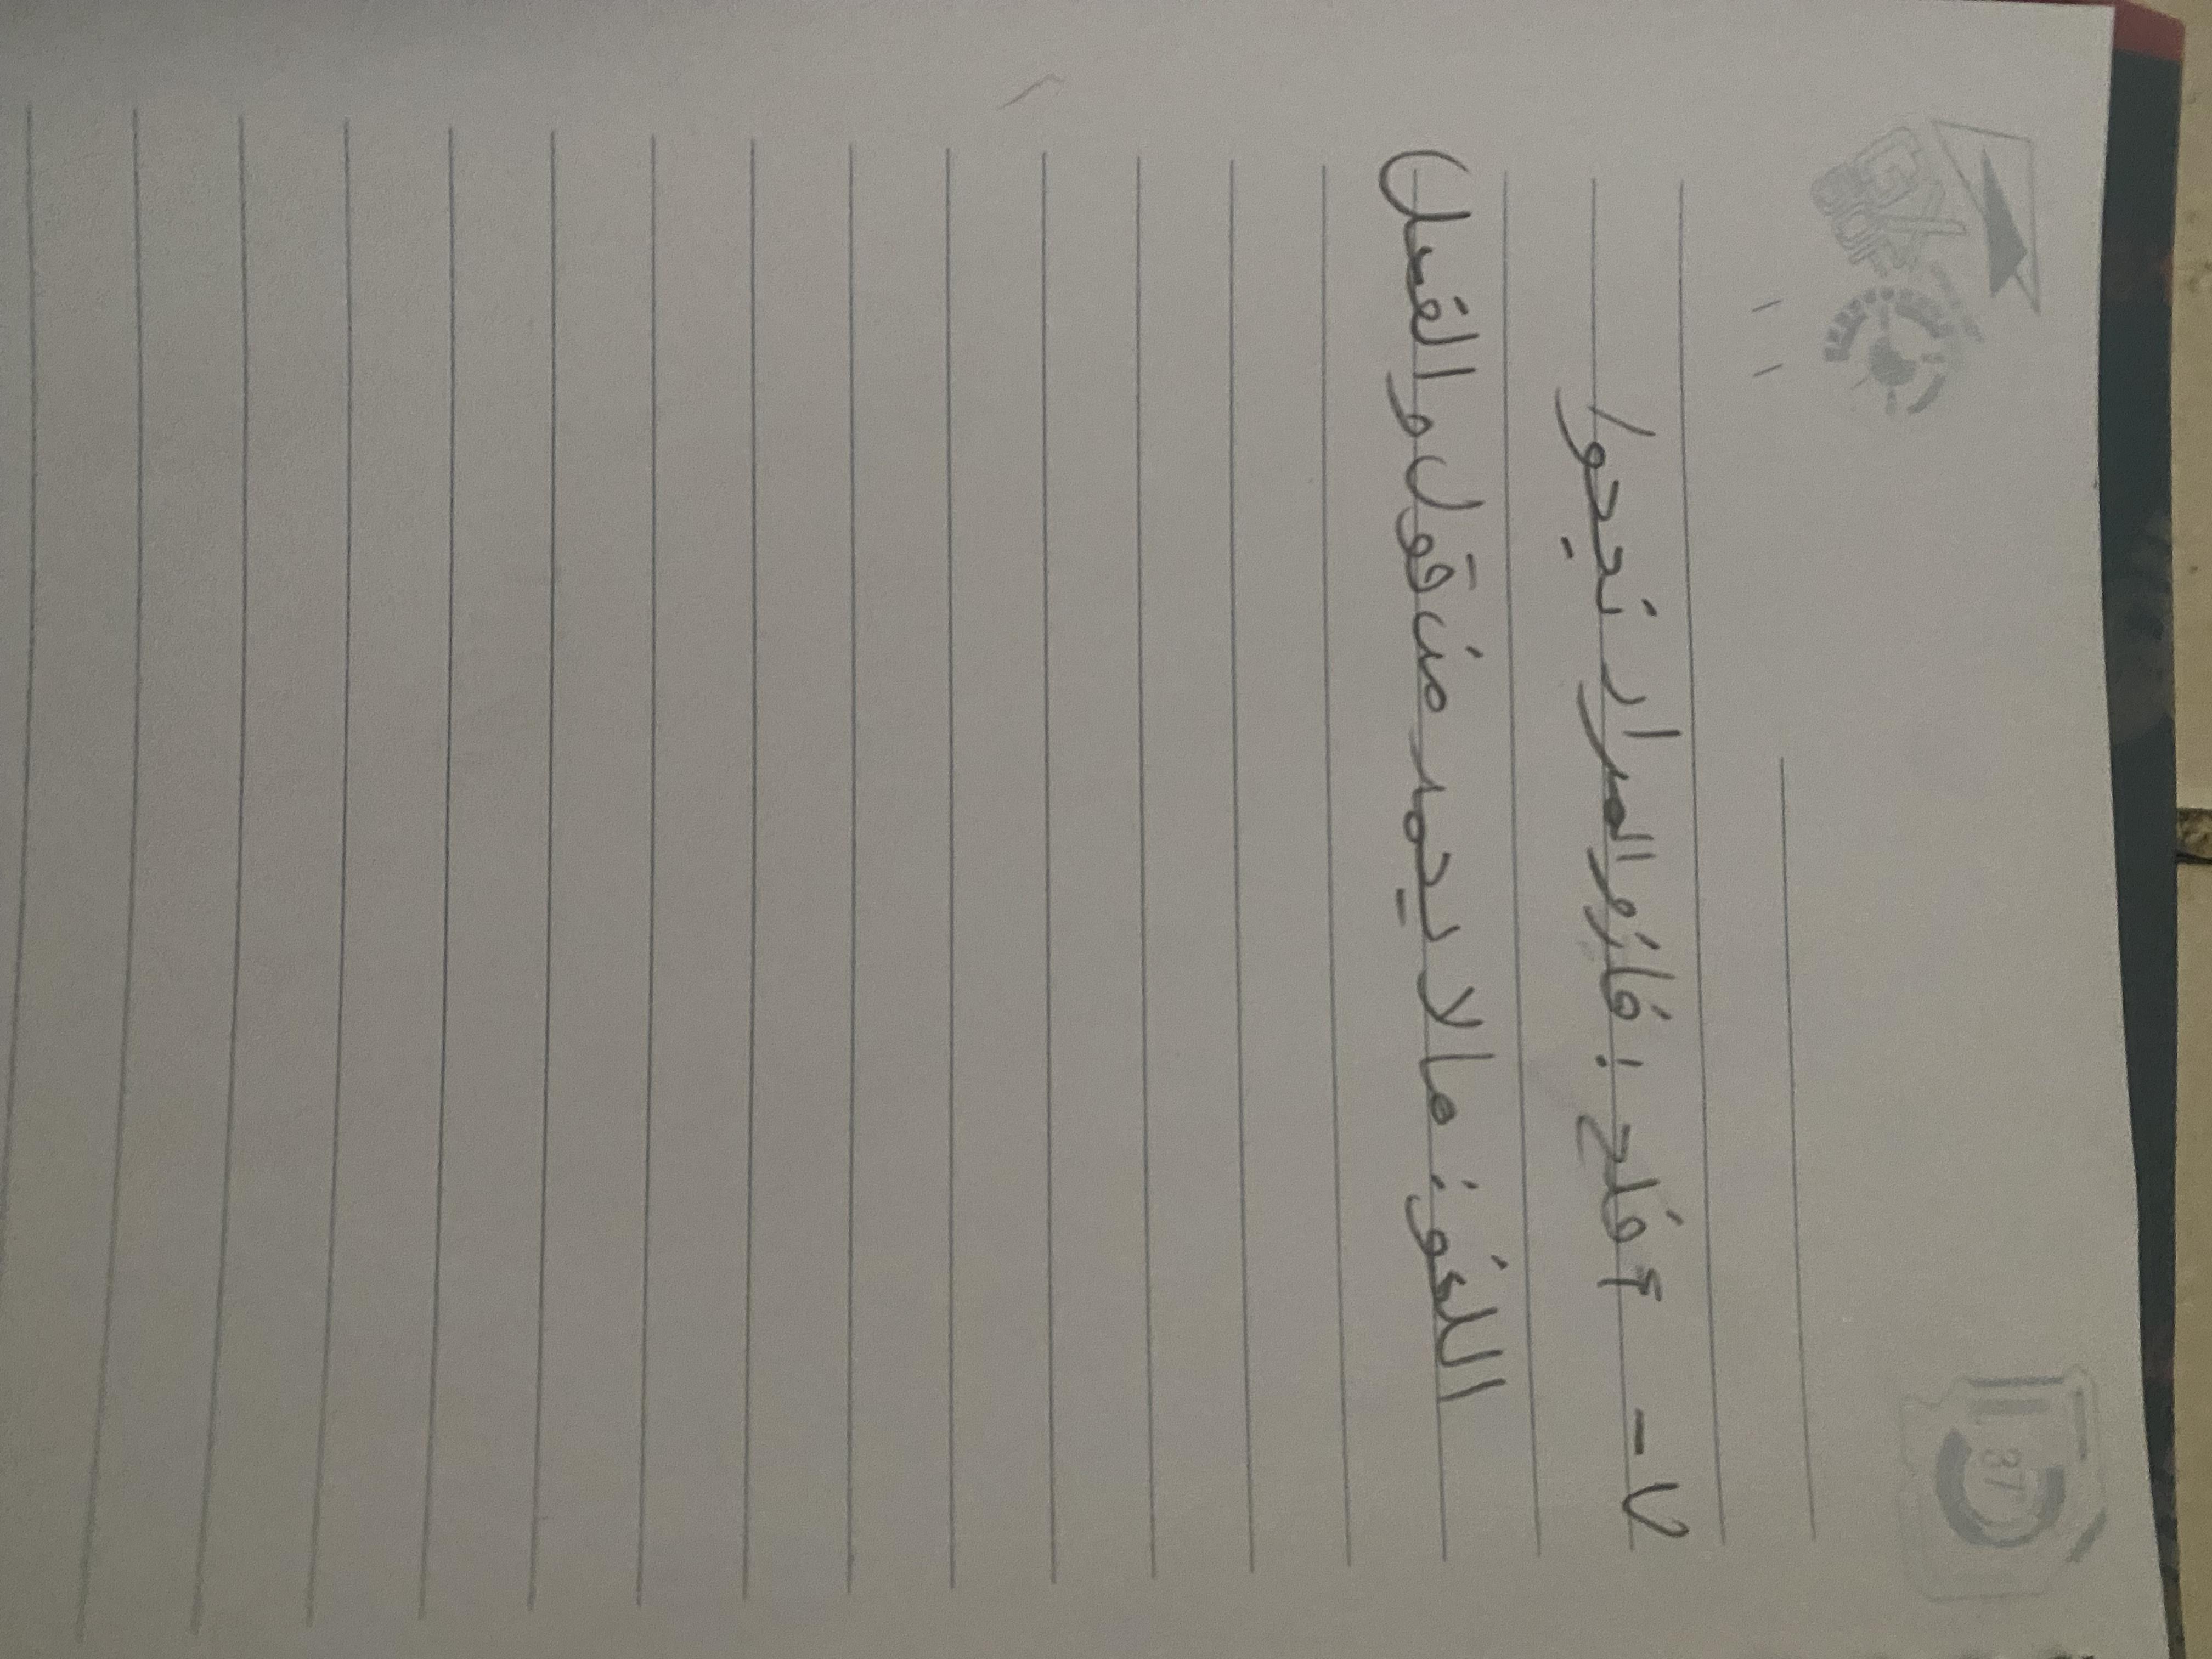 ٧- أفلح : فازوا لمرار نجو/
اللغو : ما لا يحمد من قول و الفعل
37